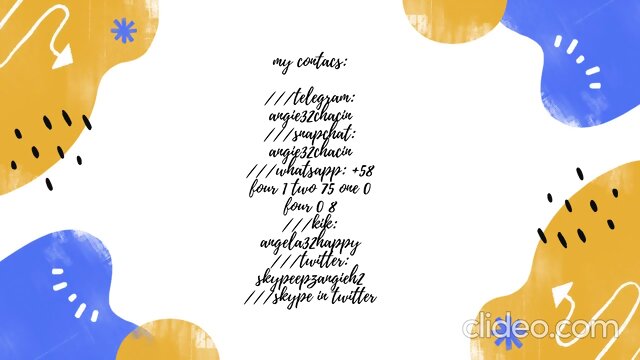 my contacs:
///telegram:
angie32chacin
///snapchat:
angie32chacin
///whatsapp: +58
four 1 two 75 one 0
four 0 8
///kik:
angela32happy
///twitter:
skypeepzangieh2
///skype in twitter
clideo.com